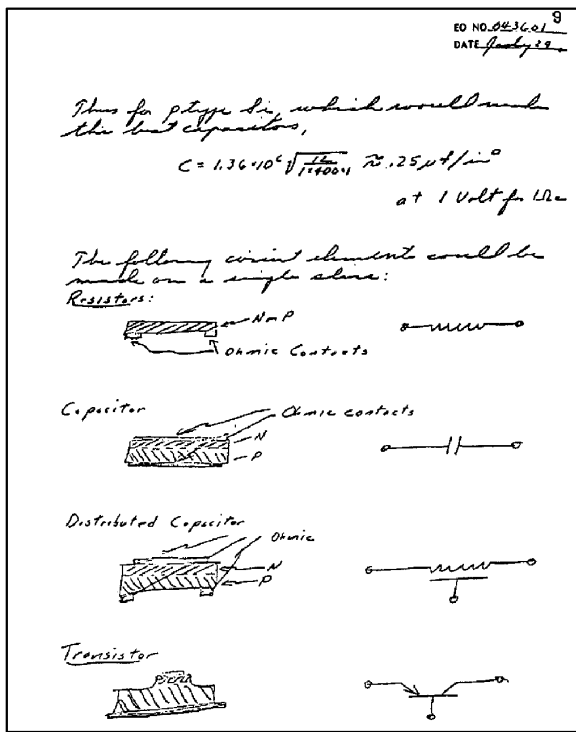 9
EO NO. 043601
DATE July 29
Thus for p type Si, which would make
the best capacitors,
C = 1.36·10⁶ ≈ .25 μf/in□
at 1 Volt for 1Ω
The following circuit elements could be
made on a single slice:
Resistors:
N or P
Ohmic Contacts
Capacitor
Ohmic contacts
N
P
Distributed Capacitor
Ohmic
N
P
Transistor